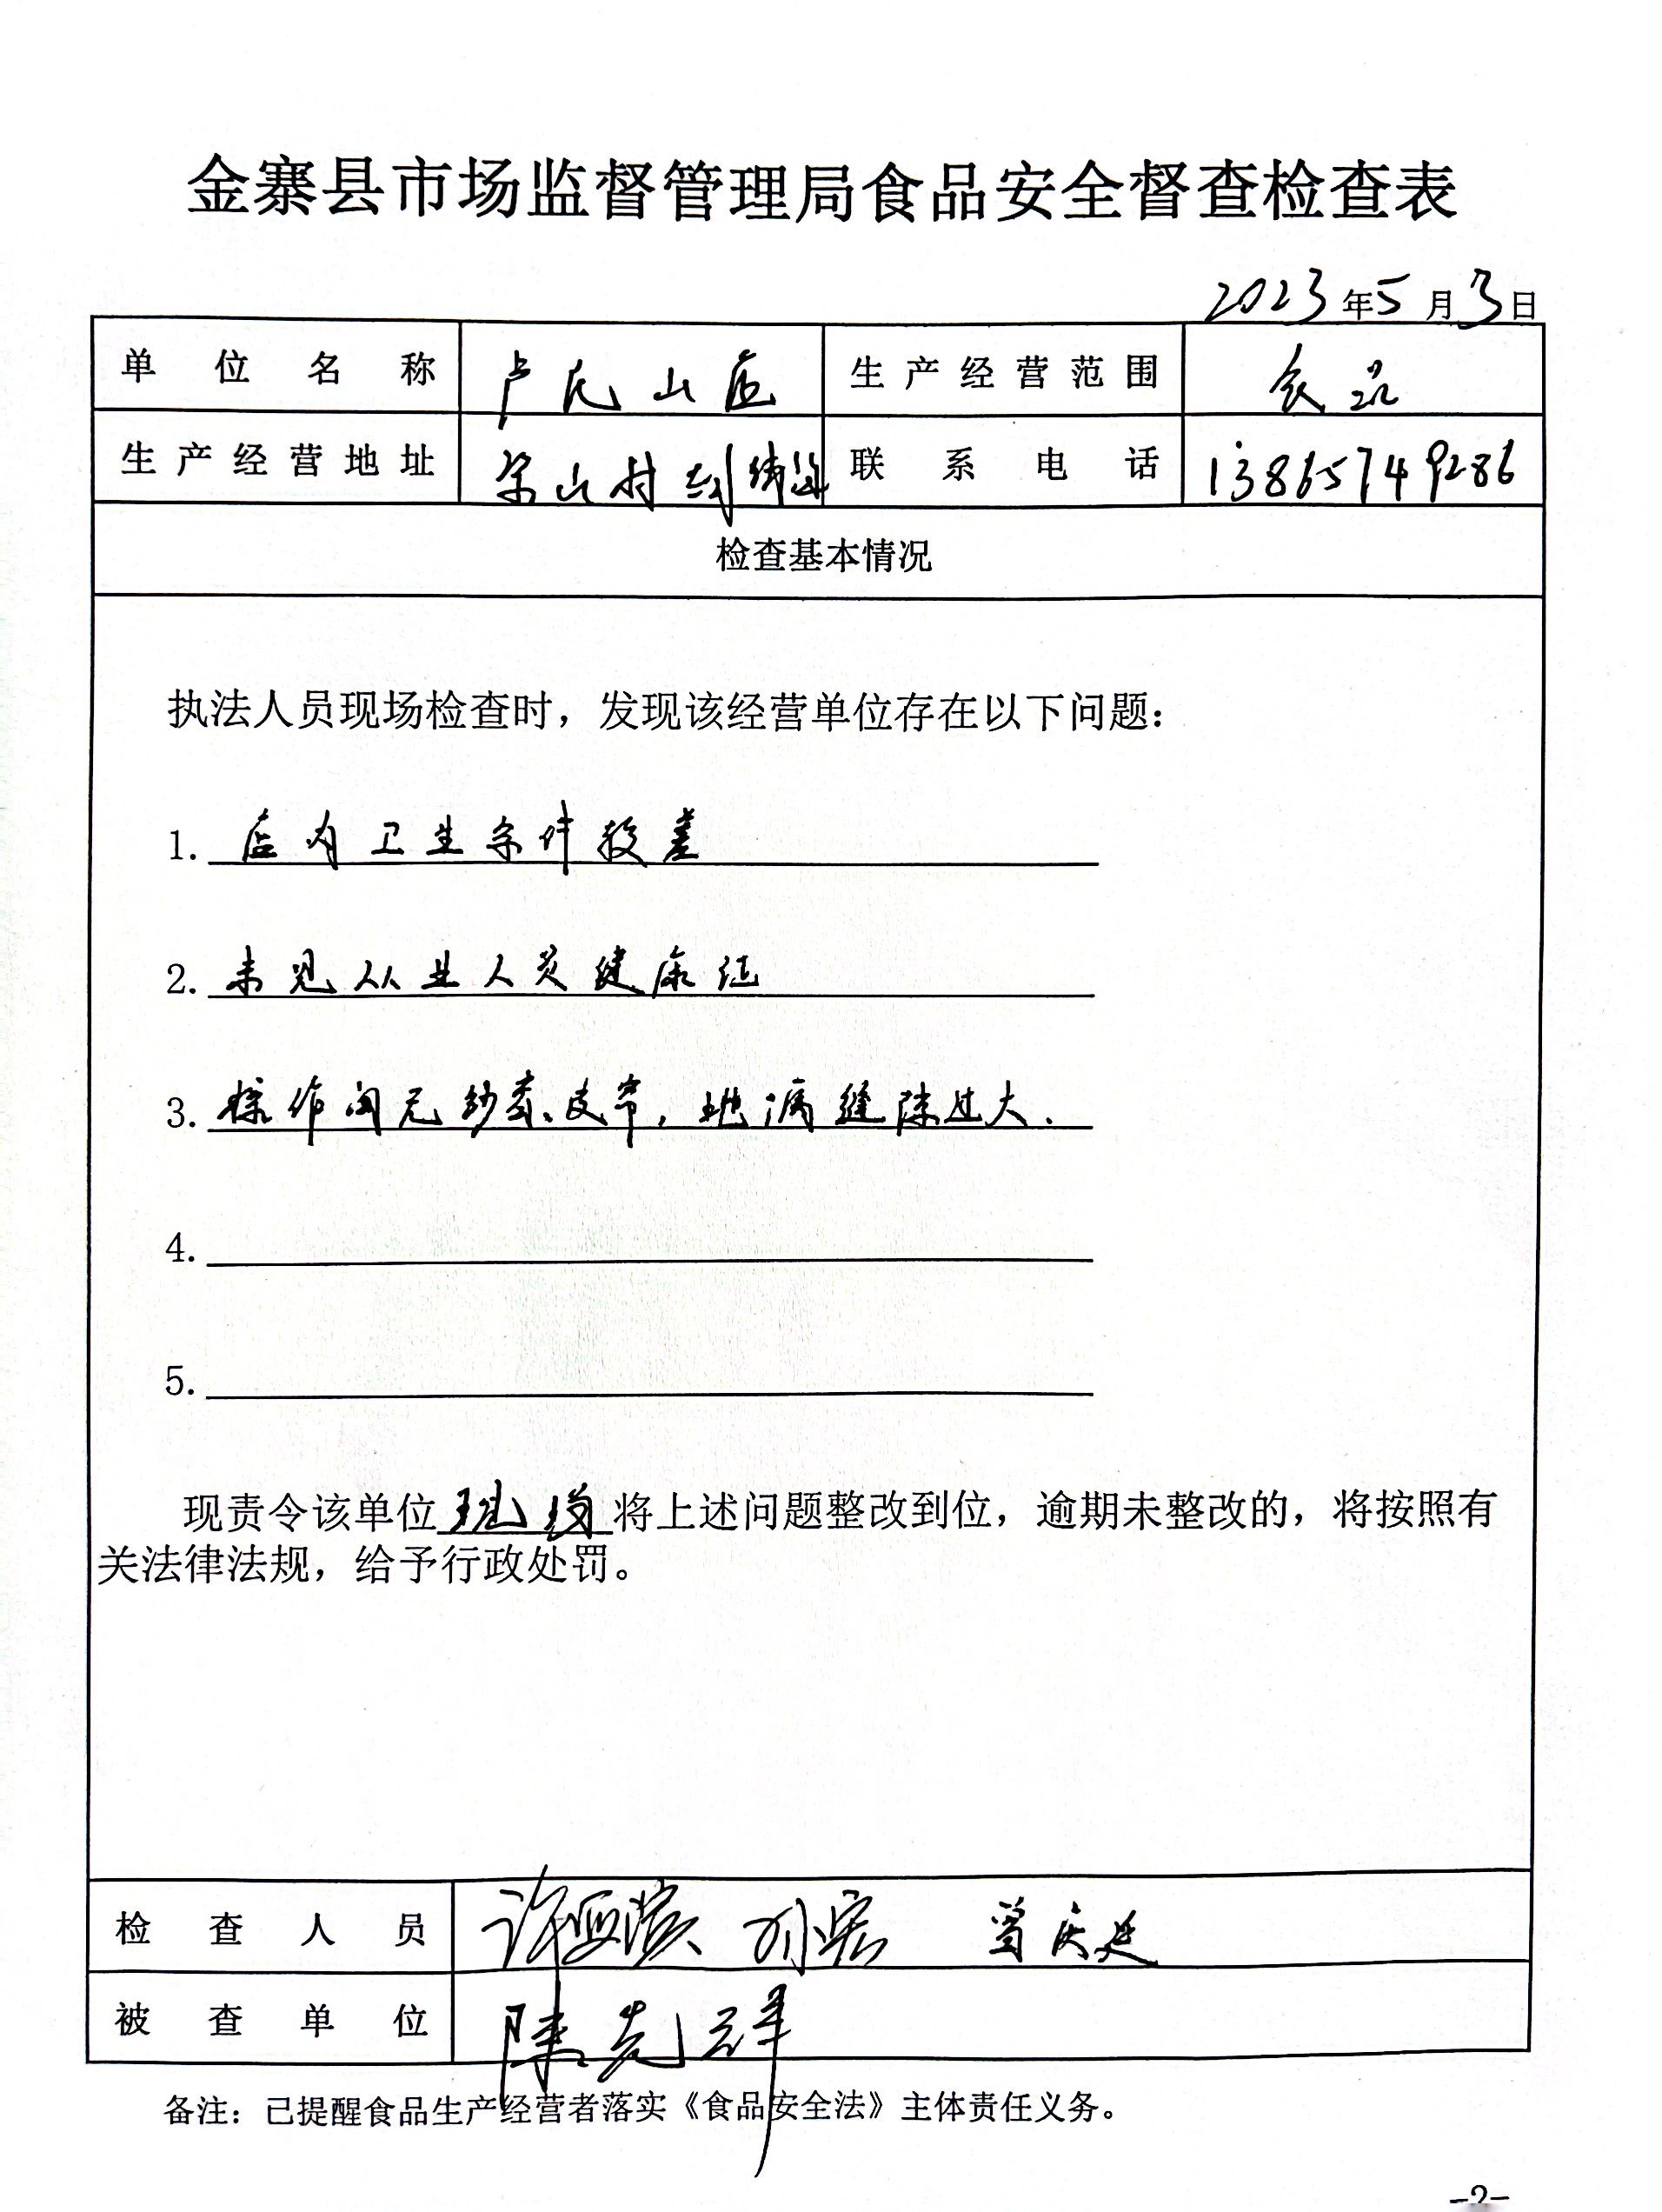 金寨县市场监督管理局食品安全督查检查表
2023年5月3日
单位名称 卢氏山庄 生产经营范围 食品
生产经营地址 梁山村刘 联系电话 13865749286
检查基本情况
执法人员现场检查时，发现该经营单位存在以下问题：
1. 店内卫生条件较差
2. 未见从业人员健康证
3. 操作间无纱窗、皮帘，地漏缝隙过大.
4.
5.
现责令该单位现场将上述问题整改到位，逾期未整改的，将按照有
关法律法规，给予行政处罚。
检查人员 刘宏 曾庆廷
被查单位 陈先祥
备注：已提醒食品生产经营者落实《食品安全法》主体责任义务。
-2-